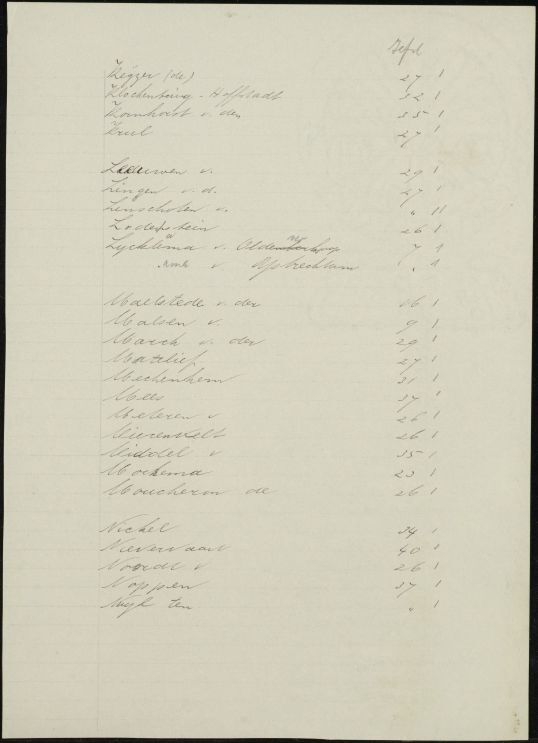 Keyzer (de) 27 1
Klockenbring-Hoffstadt 32 1
Kornhorst v. der 35 1
Krul 27 1
Leeuwen v. 29 1
Lingen v. d. 27 1
Linschoten v. " 11
Lodestein 26 1
Lycklama v. 7 1
v. " 1
Maelstede v. der 16 1
Malsen v. 9 1
March v. der 29 1
Matelief 27 1
Mechenhem 31 1
Mees 37 1
Meteren v 26 1
Mierenvelt 26 1
Middel v 35 1
Mockema 23 1
Moucheron de 26 1
Nickel 34 1
Nievervaart 40 1
Noordt v 26 1
Noppen 37 1
Nuyl ten " 1